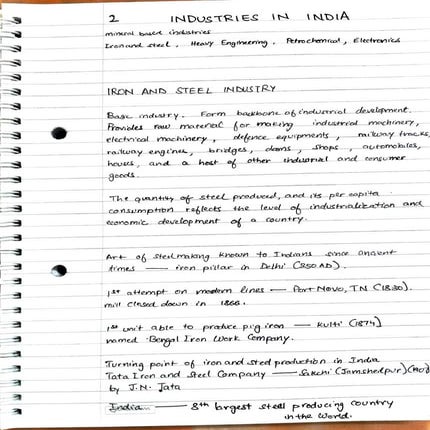 2 INDUSTRIES IN INDIA
mineral based industries
Iron and steel, Heavy Engineering, Petrochemical, Electronics
IRON AND STEEL INDUSTRY
Basic industry. Form backbone of industrial development.
Provides raw material for making industrial machinery,
electrical machinery, defence equipments, railway tracks,
railway engines, bridges, dams, ships, automobiles,
houses, and a host of other industrial and consumer
goods.
The quantity of steel produced, and its per capita
consumption reflects the level of industrialization and
economic development of a country.
Art of steelmaking known to Indians since ancient
times — iron pillar in Delhi (350 AD).
1st attempt on modern lines — Port Novo, TN (1830).
mill closed down in 1866.
1st unit able to produce pig iron — Kulti (1874)
named Bengal Iron Work Company.
Turning point of iron and steel production in India
Tata Iron and Steel Company — Sakchi (Jamshedpur)
by J.N. Tata
India — 8th largest steel producing country
in the world.